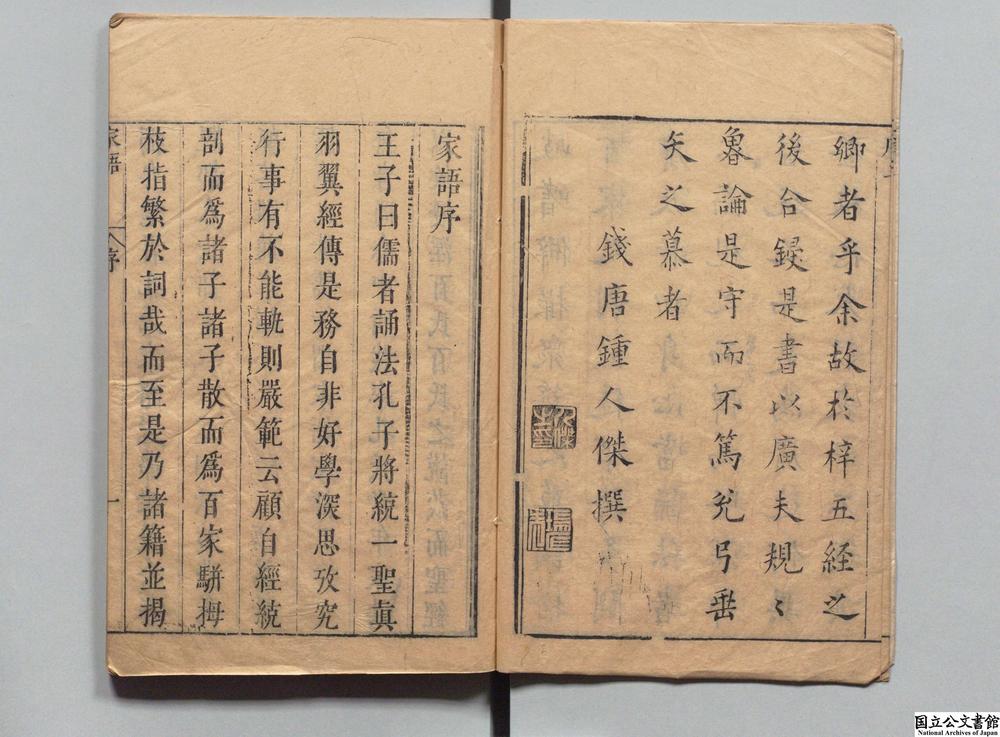 卿者乎余故於梓五経之
後合鋟是書以廣夫規〻
魯論是守而不篤兊弓垂
矢之慕者
錢唐鍾人傑撰
家語序
王子曰儒者誦法孔子將統一聖眞
羽翼經傳是務自非好學深思攷究
行事有不能軌則嚴範云顧自經統
剖而爲諸子諸子散而爲百家駢拇
枝指繁於詞哉而至是乃諸籍並揭
家語
序
一
国立公文書館
National Archives of Japan